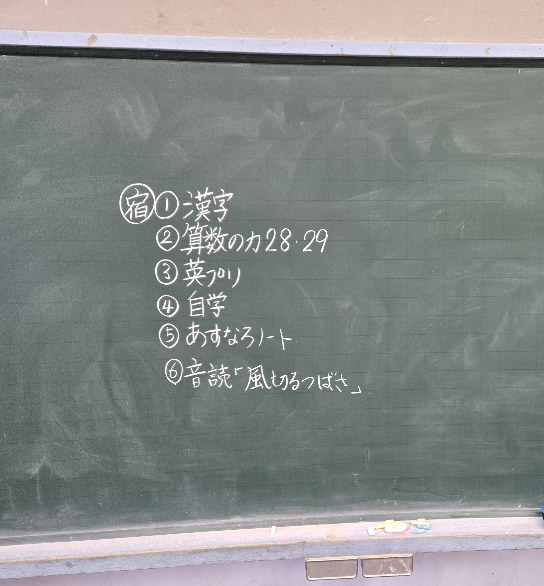 宿 ① 漢字
② 算数の力 28・29
③ 英プリ
④ 自学
⑤ あすなろノート
⑥ 音読「風切るつばさ」